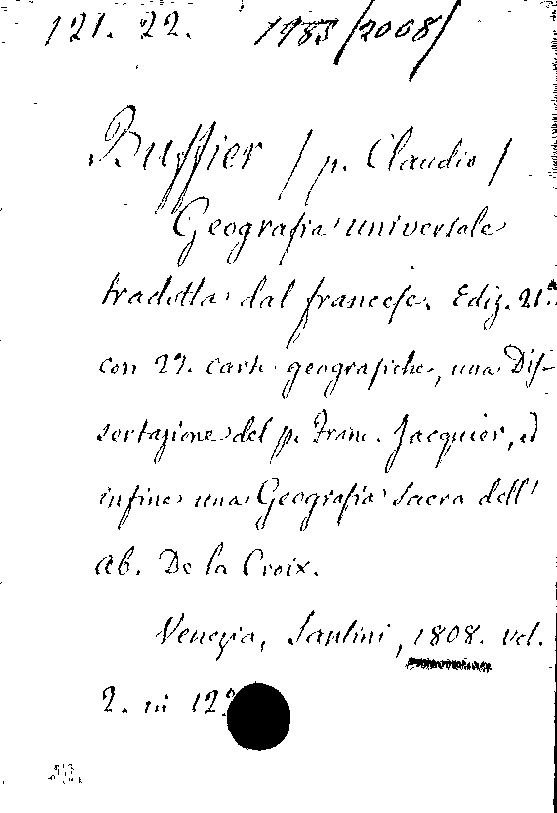 121. 22. 1983/2008/
Buffier / p. Claudio /
Geografia universale
tradotta dal francese. Ediz. 21.a
con 22. carte geografiche, una Dis-
sertazione del p. Franc. Jacquier, ed
infine una Geografia Sacra dell'
ab. De la Croix.
Venezia, Santini, 1808. vol.
2. in 12º